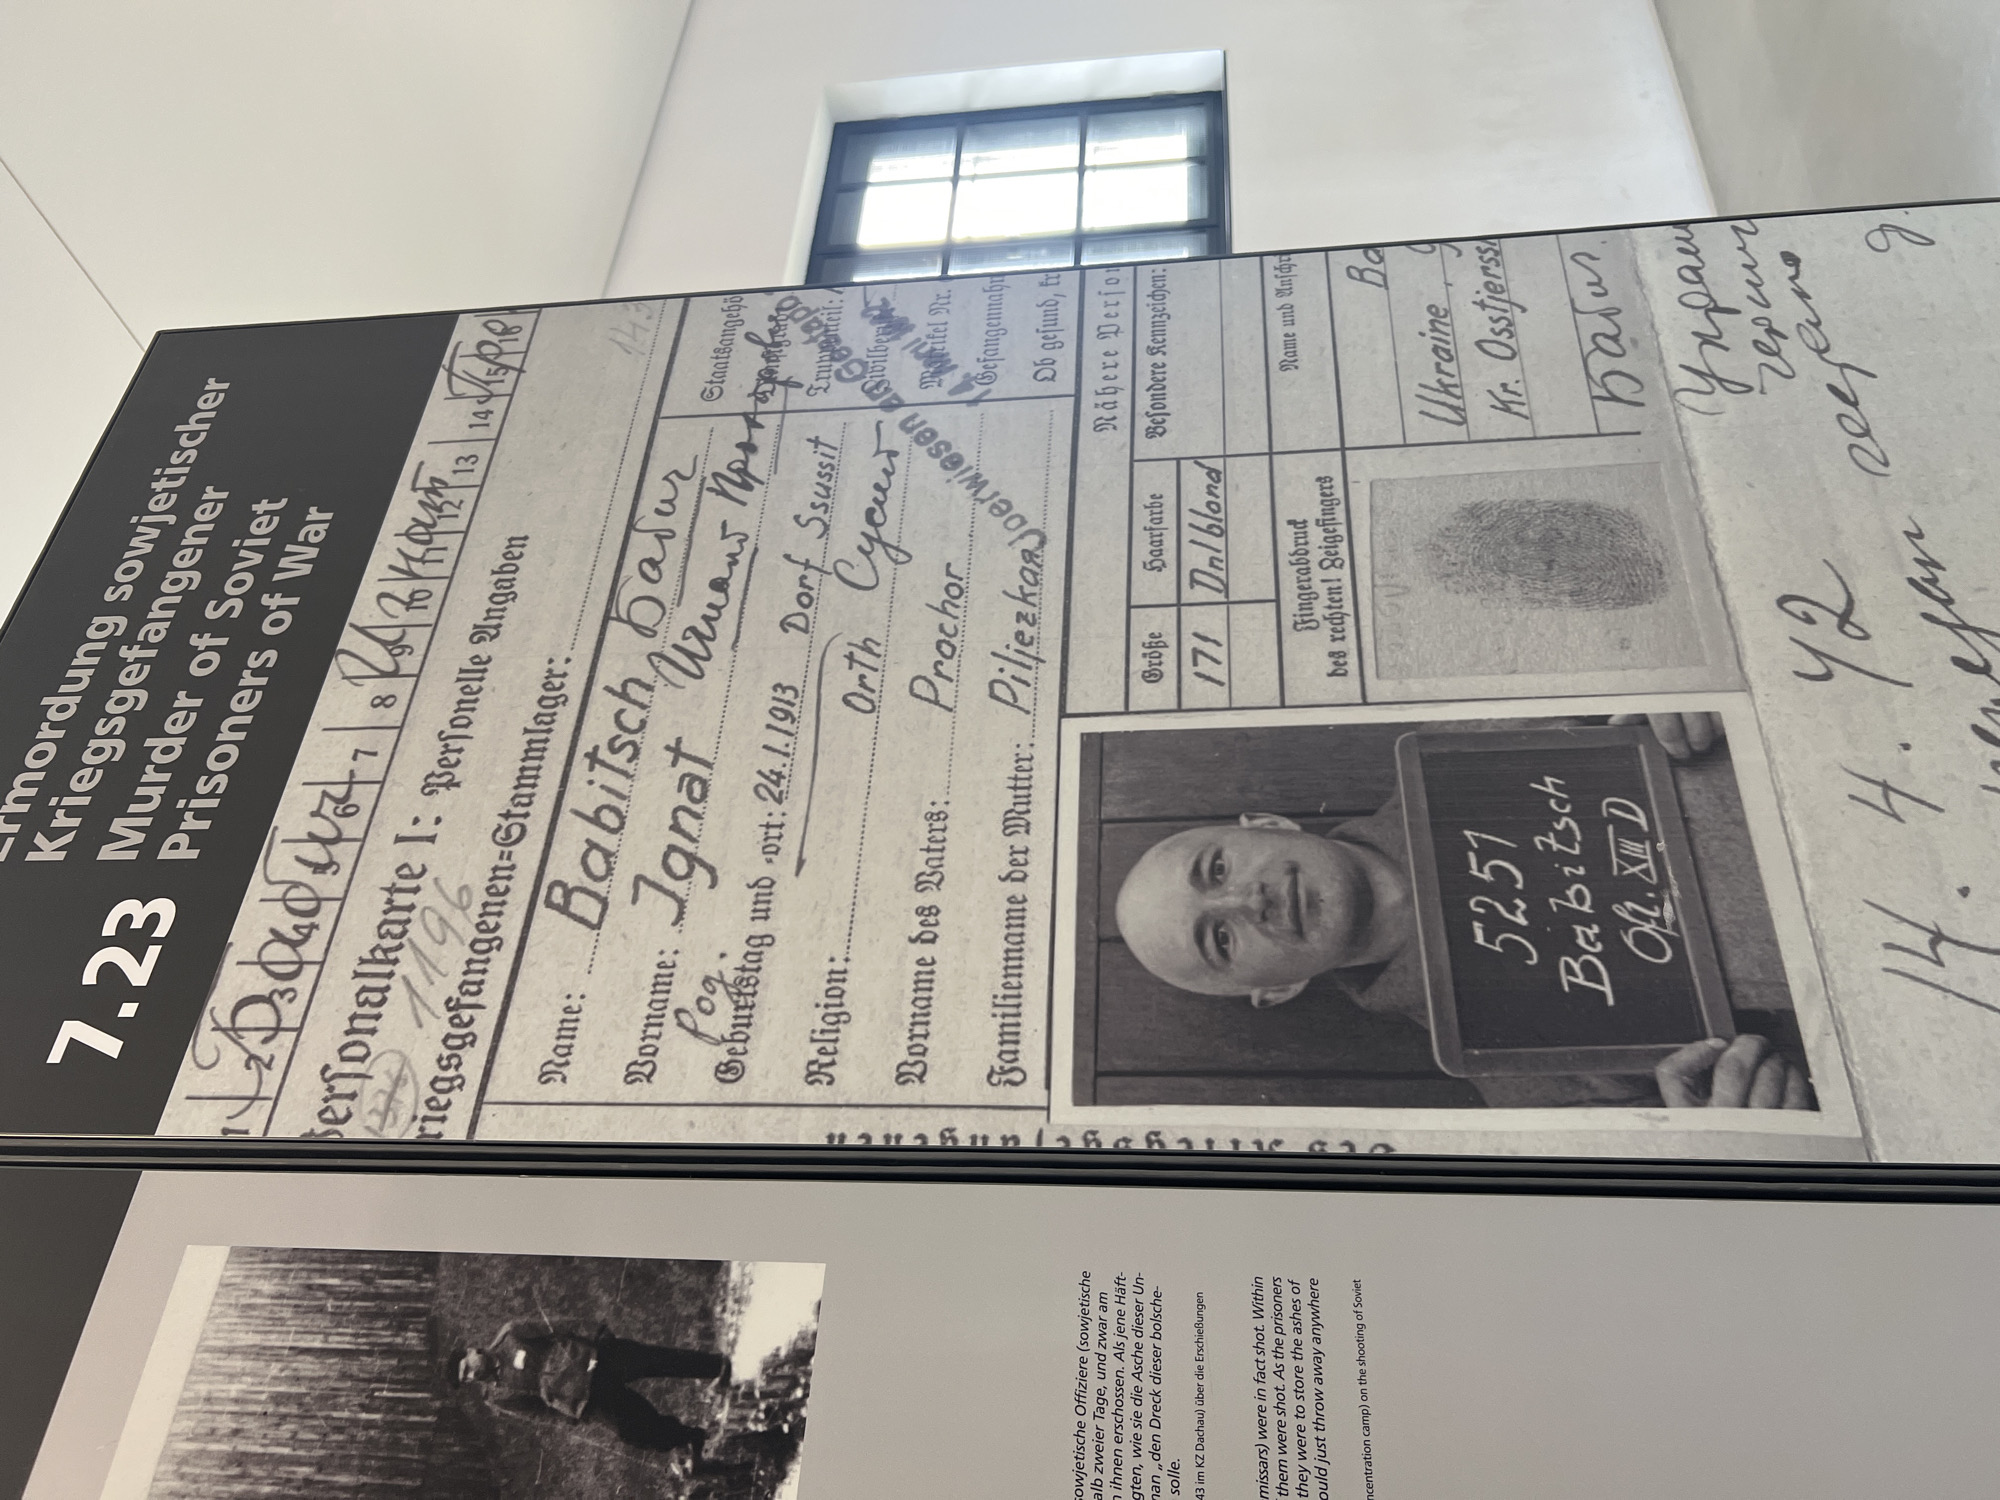 7.23
Ermordung sowjetischer
Kriegsgefangener
Murder of Soviet
Prisoners of War
1 2 3 4 5 6 7 8 9 10 11 12 13 14 15 16
Personalkarte I: Personelle Angaben
1196
Kriegsgefangenen=Stammlager:
143
Name: Babitsch Бабич
Vorname: Ignat Игнат
Geburtstag und =ort: 24.1.1913 Dorf Ssussit
Religion: Orth
Vorname des Vaters: Prochor
Familienname der Mutter: Piljezkaja
Staatsangehö
Truppenteil:
Zivilberuf
Matrikel Nr.
Gefangennahm
Ob gesund, kr
Überwiesen an Gestapo
Nähere Person
Größe
Haarfarbe
Besondere Kennzeichen:
171
Dnlblond
Fingerabdruck
des rechten! Zeigefingers
Name und Anschr
Ba
Ukraine
Kr. Osstjerss
Бабич.
5251
Babitsch
Ofl. XIII D
14. 4. 42
sowjetische Offiziere (sowjetische
alb zweier Tage, und zwar am
n ihnen erschossen. Als jene Häft-
gten, wie sie die Asche dieser Un-
man „den Dreck dieser bolsche-
solle.
43 im KZ Dachau) über die Erschießungen
missars) were in fact shot. Within
them were shot. As the prisoners
they were to store the ashes of
ould just throw away anywhere
ncentration camp) on the shooting of Soviet